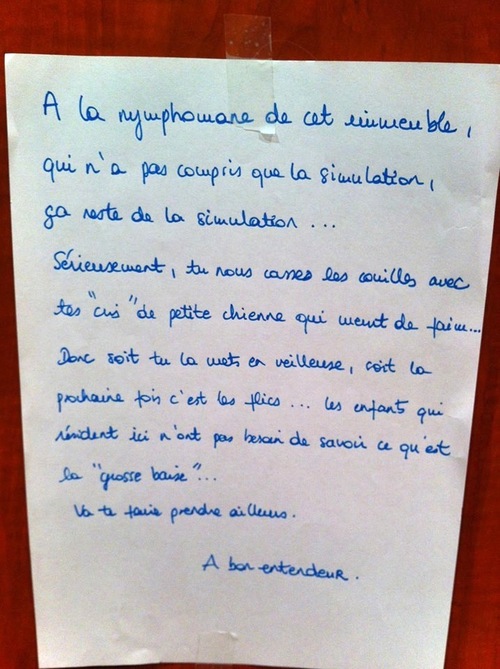 A la nymphomane de cet immeuble,
qui n'a pas compris que la simulation,
ça reste de la simulation ...
Sérieusement, tu nous casses les couilles avec
tes "cris" de petite chienne qui meurt de faim...
Donc soit tu la mets en veilleuse, soit la
prochaine fois c'est les flics ... les enfants qui
résident ici n'ont pas besoin de savoir ce qu'est
la "grosse baise"...
Va te faire prendre ailleurs.
A bon entendeur.